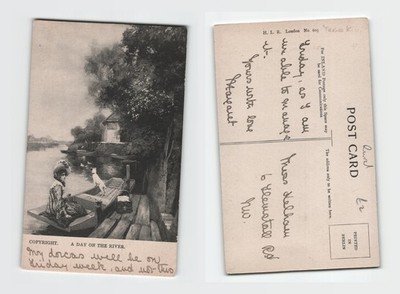 COPYRIGHT. A DAY ON THE RIVER.
My dorcas will be on
Friday week, and not this
H. L. R. London No. 105
Friday, as I am
unable to manage
it.
Yours with love
Margaret
For INLAND Postage only this Space may
be used for Communication
POST CARD
The address only to be written here.
PRINTED
IN
BERLIN
Miss
6
Rd
N.W.